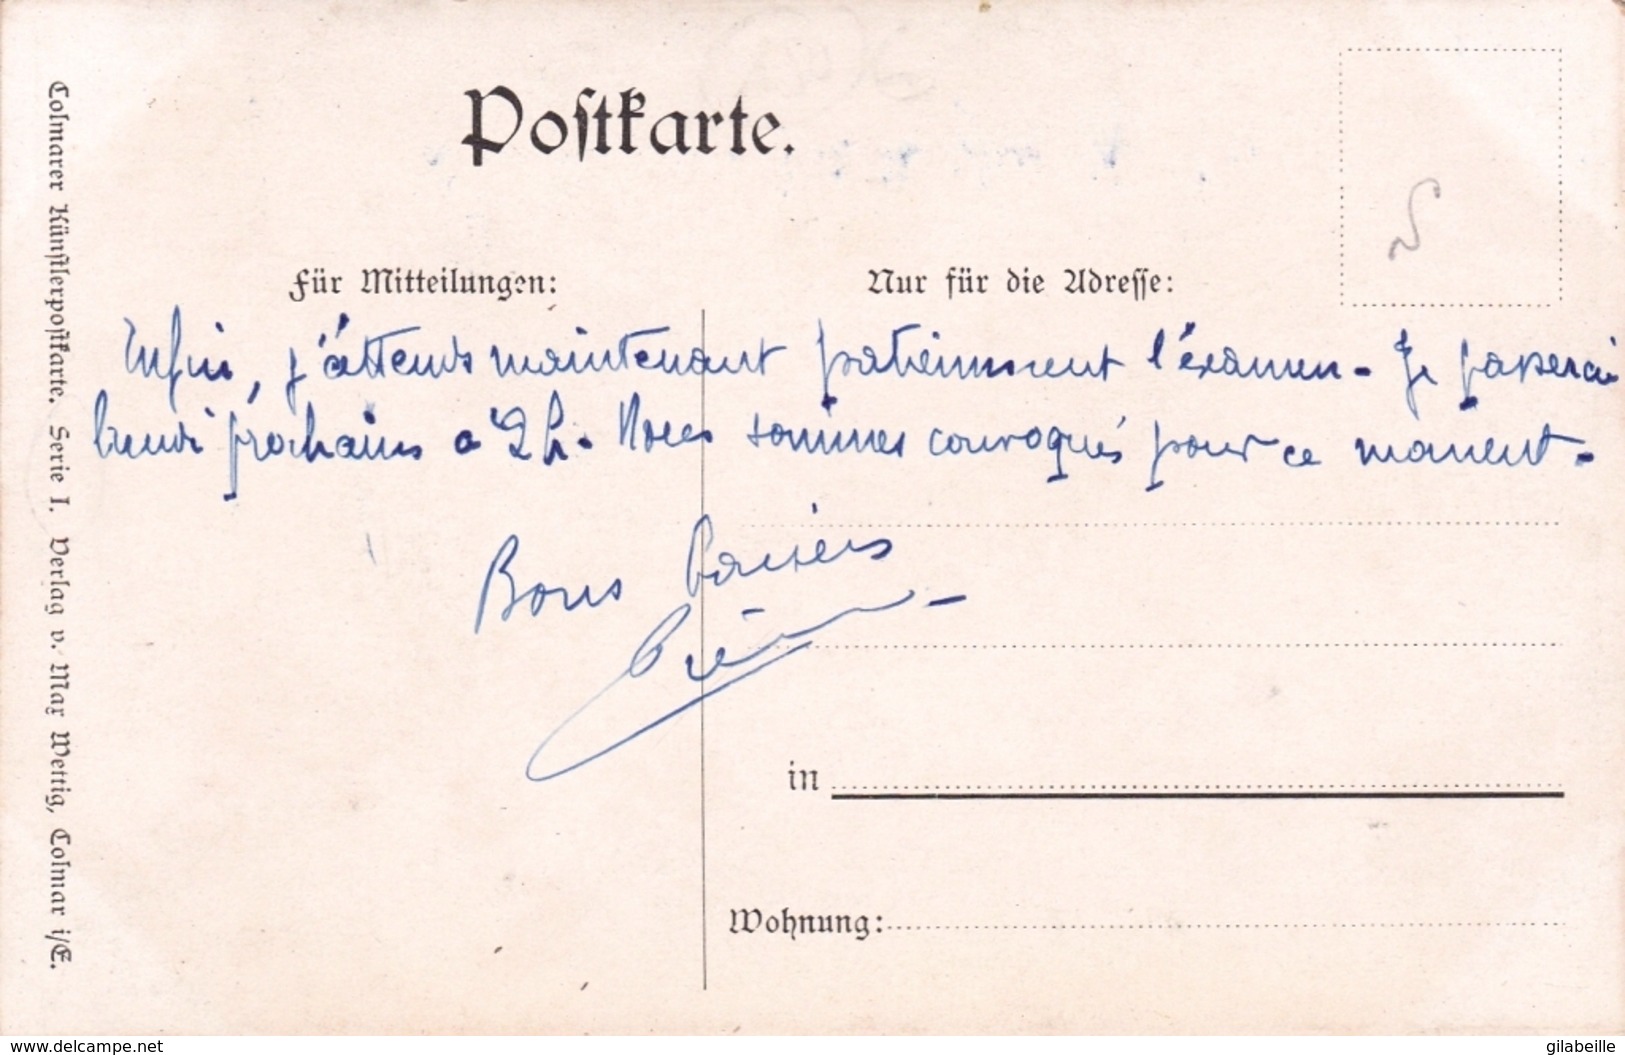 Postkarte.
Für Mitteilungen:
Nur für die Adresse:
Enfin, j'attends maintenant patiemment l'examen - Je passerai
lundi prochain à 2 h. Nous sommes convoqués pour ce moment -
Bons baisers
in
Wohnung:
Colmarer Künstlerpostkarte. Serie I. Verlag v. Max Wettig, Colmar i/E.
www.delcampe.net
gilabeille